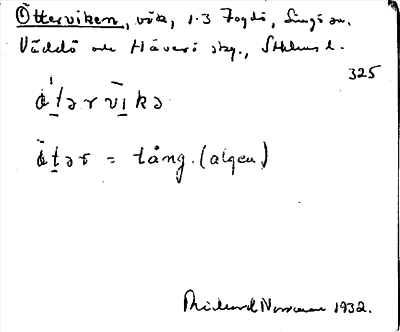 Ötterviken, vik, 1·3 Fogdö, Singö sn.
Väddö och Häverö skg., Sthlms l.
325
ö́t̲ərvi̲kə
ö̀t̲ər = tång. (algen)
Rickard Norrman 1932.